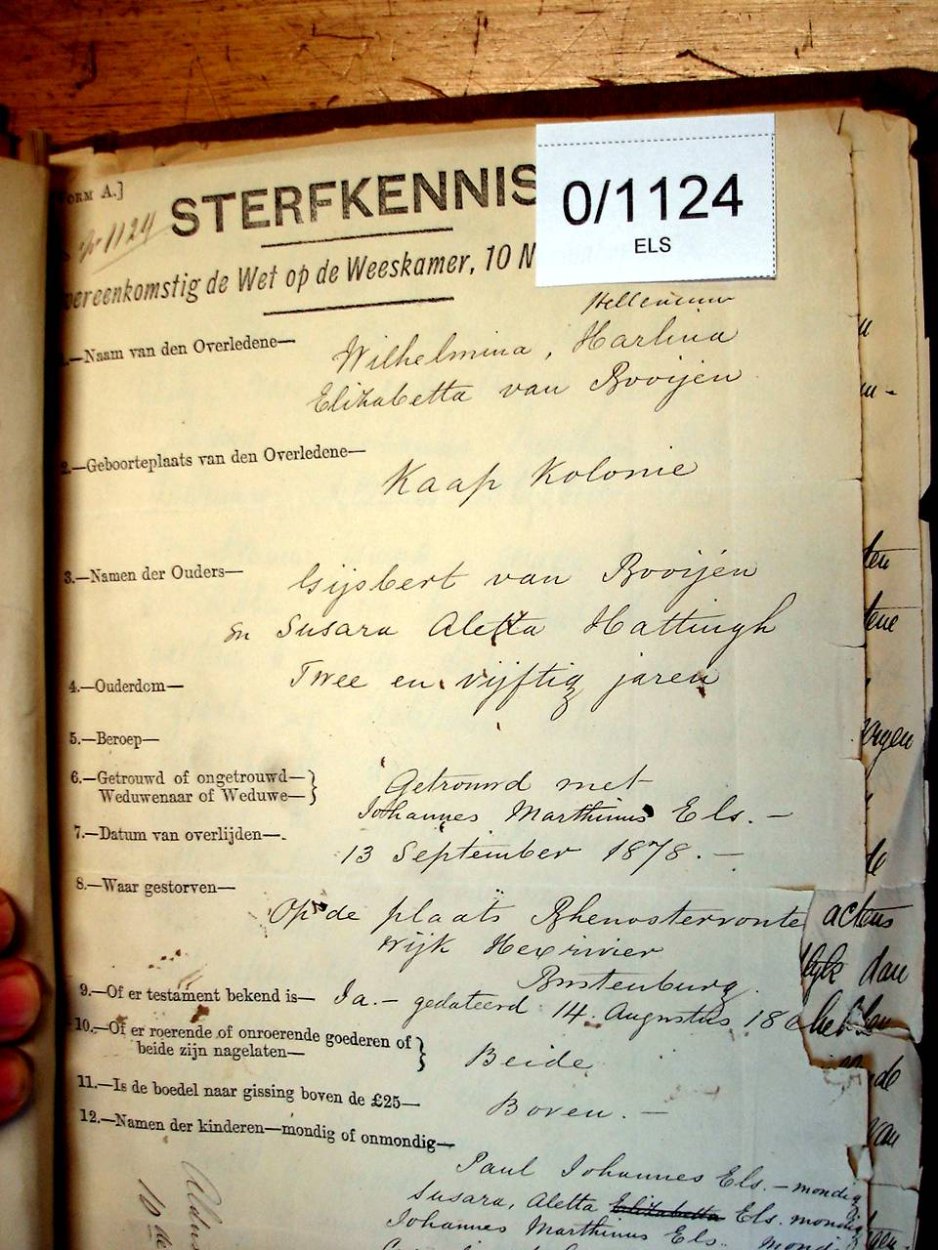 FORM A.]
STERFKENNIS
0/1124
ELS
No 1124
overeenkomstig de Wet op de Weeskamer, 10 N
1.—Naam van den Overledene—
Wilhelmina, Harlina
Elizabetta van Booijen
2.—Geboorteplaats van den Overledene—
Kaap Kolonie
3.—Namen der Ouders—
Gijsbert van Booijen
en Susara Aletta Hattingh
4.—Ouderdom—
Twee en vijftig jaren
5.—Beroep—
6.—Getrouwd of ongetrouwd—
Weduwenaar of Weduwe—
Getrouwd met
Johannes Marthinus Els.—
7.—Datum van overlijden—
13 September 1878.—
8.—Waar gestorven—
Op de plaats Rhenostervonte
wijk Hexrivier
Rustenburg.
9.—Of er testament bekend is— Ja.— gedateerd 14 Augustus 18
10.—Of er roerende of onroerende goederen of
beide zijn nagelaten—
Beide
11.—Is de boedel naar gissing boven de £25—
Boven.—
12.—Namen der kinderen—mondig of onmondig—
Paul Johannes Els.—mondig
Susara, Aletta Elizabetta Els. mondig
Johannes Marthinus Els. mondi
acteus
dan
de
van